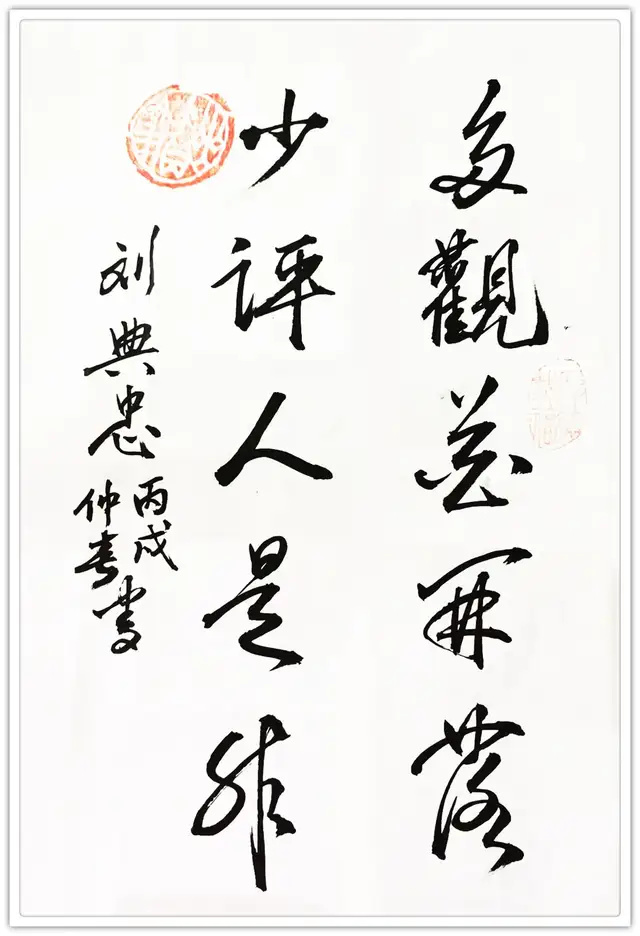 多觀花開落
少評人是非
刘典忠
丙戌
仲春